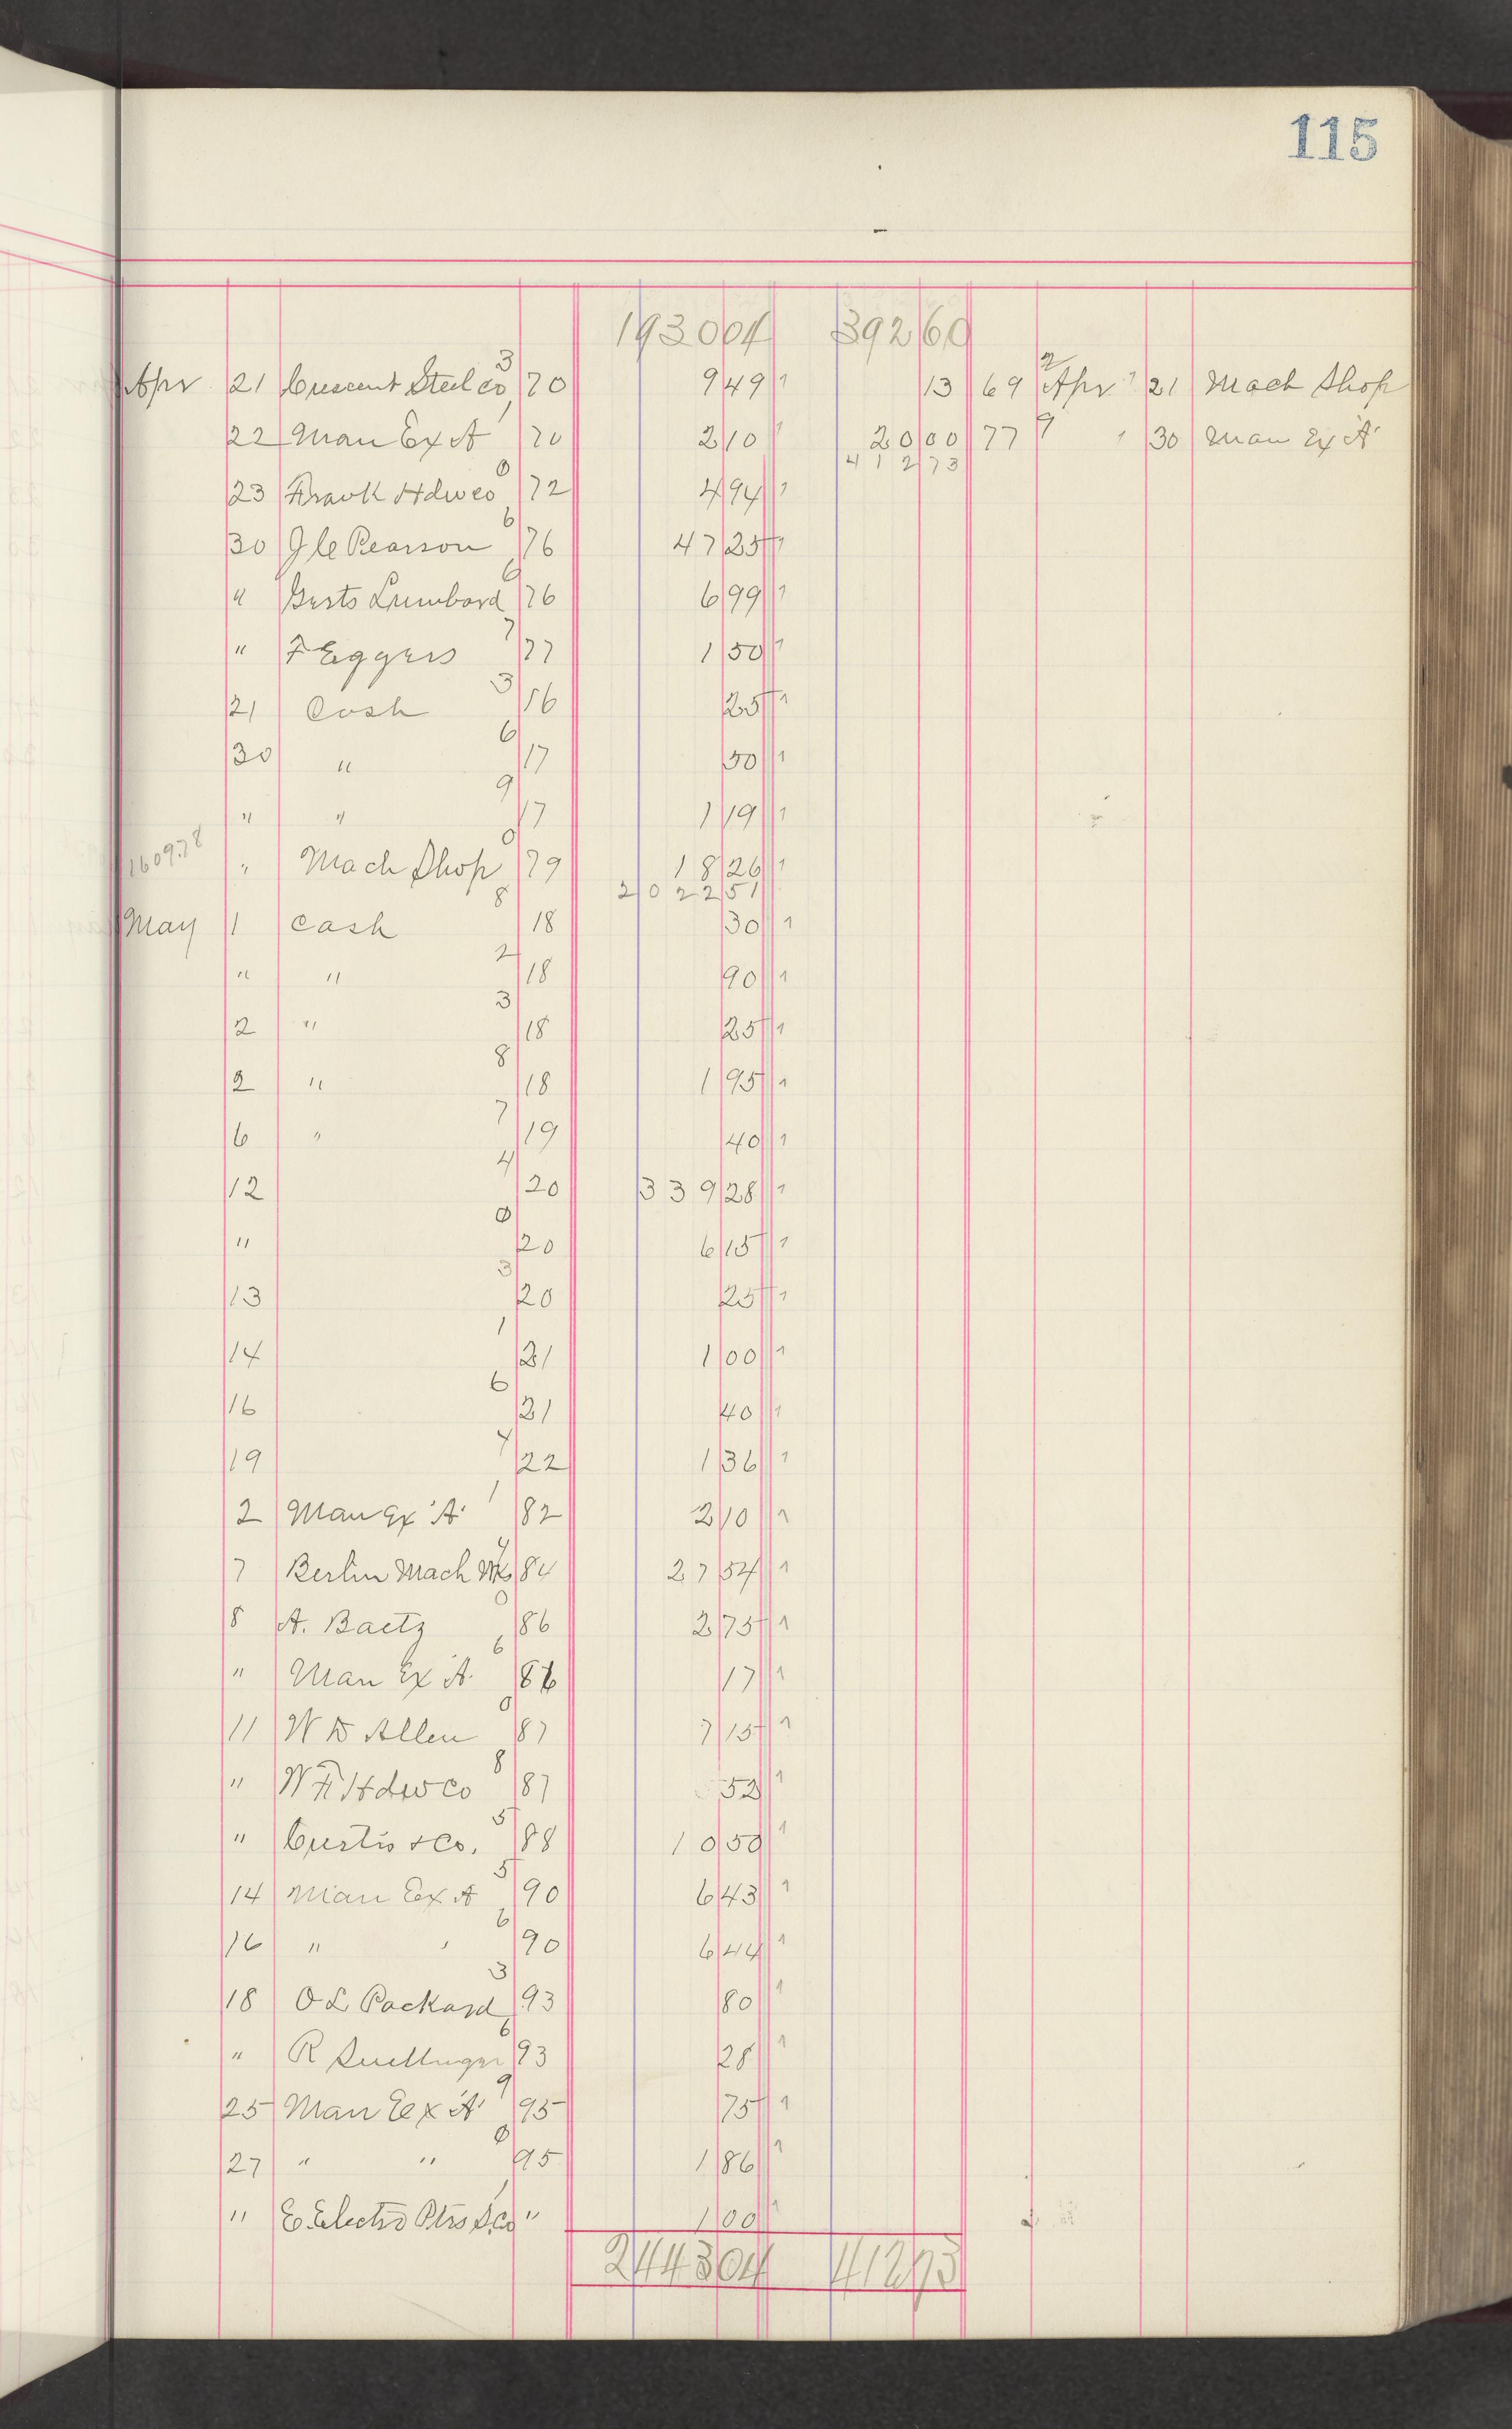 115
1930 04 392 60
3
Apr 21 Crescent Steel Co 70 9 49 1 13 69 2 Apr 21 Mach Shop
22 Man Ex A 70 2 10 1 20 00 77 9 " 30 Man Ex "A"
412 73
0
23 Frank Hdw Co 72 4 94 1
6
30 J C Pearson 76 47 25 1
6
" Gusts Lumbard 76 6 99 1
7
" F Eggers 77 1 50 1
3
21 Cash 16 25 1
6
30 " 17 50 1
9
" " 17 1 19 1
0
1609.78 " Mach Shop 79 18 26 1
8 2022 51
May 1 Cash 18 30 1
2
" " 18 90 1
3
2 " 18 25 1
8
2 " 18 1 95 1
7
6 " 19 40 1
4
12 20 339 28 1
0
" 20 6 15 1
3
13 20 25 1
1
14 21 1 00 1
6
16 21 40 1
4
19 22 1 36 1
1
2 Man Ex "A" 82 2 10 1
4
7 Berlin Mach Wks 84 27 54 1
0
8 A. Baetz 86 2 75 1
6
" Man Ex "A" 86 17 1
0
11 W D Allen 87 7 15 1
8
" W F Hdw Co 87 52 1
5
" Curtis & Co. 88 10 50 1
5
14 Man Ex A 90 6 43 1
6
16 " " 90 6 44 1
3
18 O L Packard 93 80 1
6
" R 93 28 1
9
25 Man Ex "A" 95 75 1
0
27 " " 95 1 86 1
" E. Electro Co " 1 00 1
2443 04 412 73